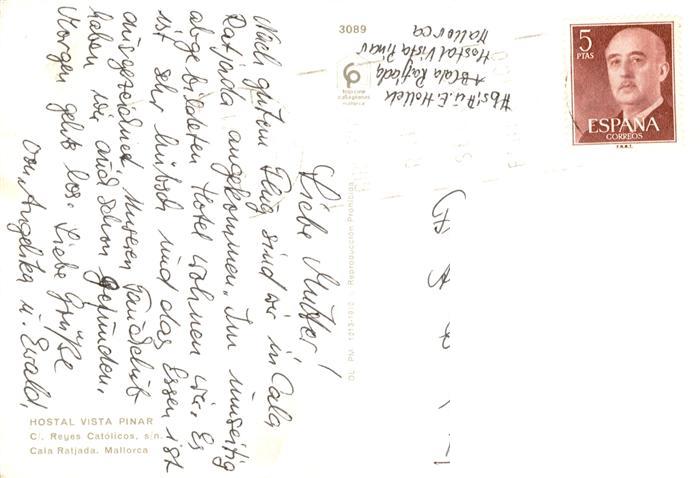 Liebe Mutter!
Nach gutem Flug sind wir in Cala
Ratjada angekommen. Im umseitig
abgebildeten Hotel wohnen wir. Es
ist sehr hübsch und das Essen ist
ausgezeichnet. Unseren Tauchclub
haben wir auch schon gefunden.
Morgen gehts los. Liebe Grüße
von Angelika u. Ewald.
HOSTAL VISTA PINAR
C/. Reyes Católicos, s/n.
Cala Ratjada. Mallorca
3089
mallorca
DL PM
Reproducción Prohibida
Hostal Vista Pinar
Mallorca
5
PTAS
ESPAÑA
CORREOS
F.N.M.T.